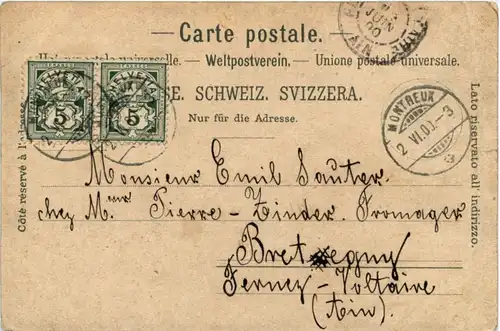 Carte postale.
Weltpostverein. Union postale universelle.
SCHWEIZ. SVIZZERA.
Nur für die Adresse.
Côté réservé à l'adresse
Lato riservato all' indirizzo.
HELVETIA
5
HELVETIA
5
JUIN
MONTREUX
2 VI.00.-3
Monsieur Emil Sauter.
chez Mr Pierre-Zinder. Fromager
Bretegny
Ferney-Voltaire
(Ain)